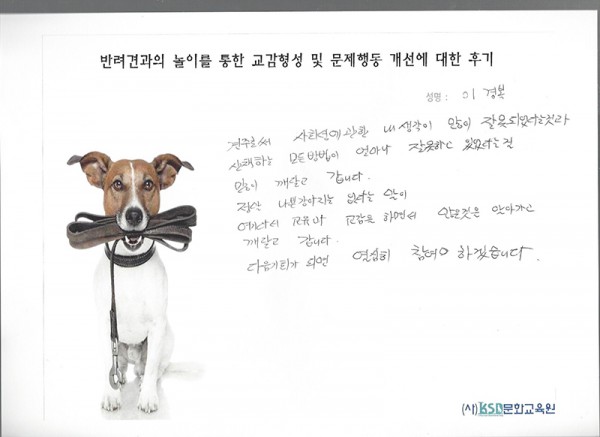 반려견과의 놀이를 통한 교감형성 및 문제행동 개선에 대한 후기
성명 : 이 경복
견주로써 사회성에 관한 내 생각이 많이 잘못되었다는것과
산책하는 모든방법이 얼마나 잘못하고 있었다는걸
많이 깨닫고 갑니다.
정말 나쁜강아지는 없다는 말이
여기와서 교육과 교감을 하면서 많은것은 알아가고
깨닫고 갑니다.
다음기회가 되면 열심히 참여 하겠습니다.
(사)KSD문화교육원